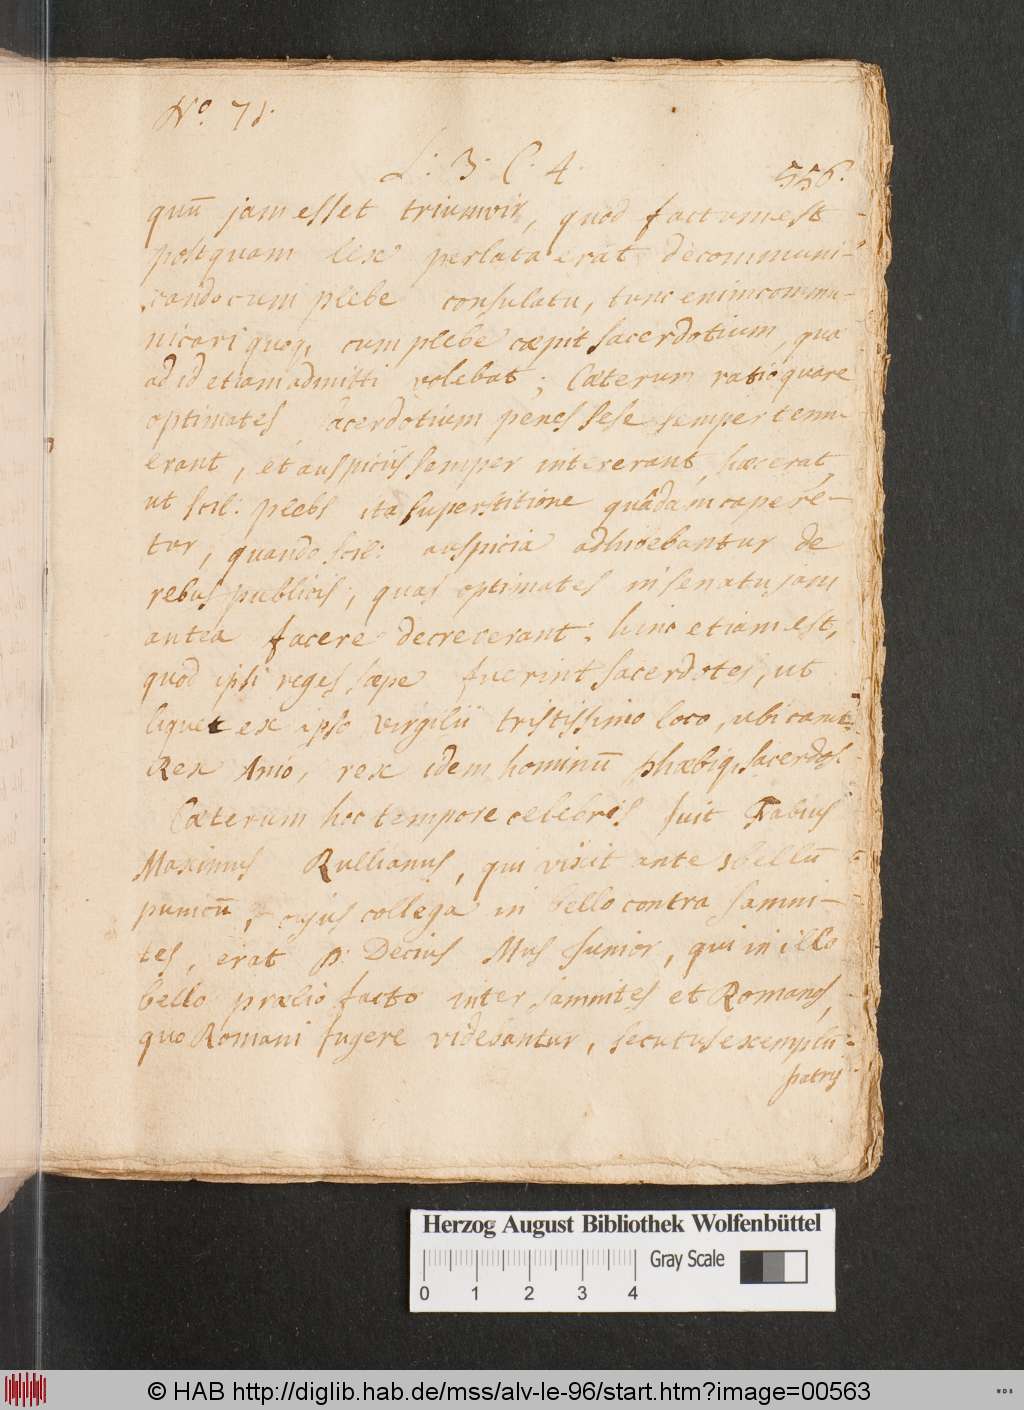 No. 71.
L. 3. C. 4.
556.
quū jam esset triumvir, quod factum est
postquam lex perlata erat de communi-
cando cum plebe consulatu, tunc enim commu-
nicari quoq, cum plebe cœpit sacerdotium, qua
ad id etiam admitti volebat; Cæterum ratio quare
optimates sacerdotium penes sese semper tenu-
erant, et auspiciis semper intererant, hæc erat,
ut scil: plebs ita superstitione quâdam capere-
tur, quando scil: auspicia adhibebantur de
rebus publicis, quas optimates in senatu jam
antea facere decreverant; hinc etiam est,
quod ipsi reges sæpe fuerint sacerdotes, ut
liquet ex ipso Virgilii tristissimo loco, ubi canit:
Rex Anio, rex idem hominū phœbiq, sacerdos
Cæterum hoc tempore celebris fuit Fabius
Maximus Rullianus, qui vixit ante 1 bellū
punicū, cujus collega in bello contra Samni-
tes, erat P. Decius Mus Junior, qui in illo
bello prælio facto inter Samnites et Romanos,
quo Romani fugere videbantur, secutus exemplū
patris
Herzog August Bibliothek Wolfenbüttel
0 1 2 3 4
Gray Scale
© HAB http://diglib.hab.de/mss/alv-le-96/start.htm?image=00563